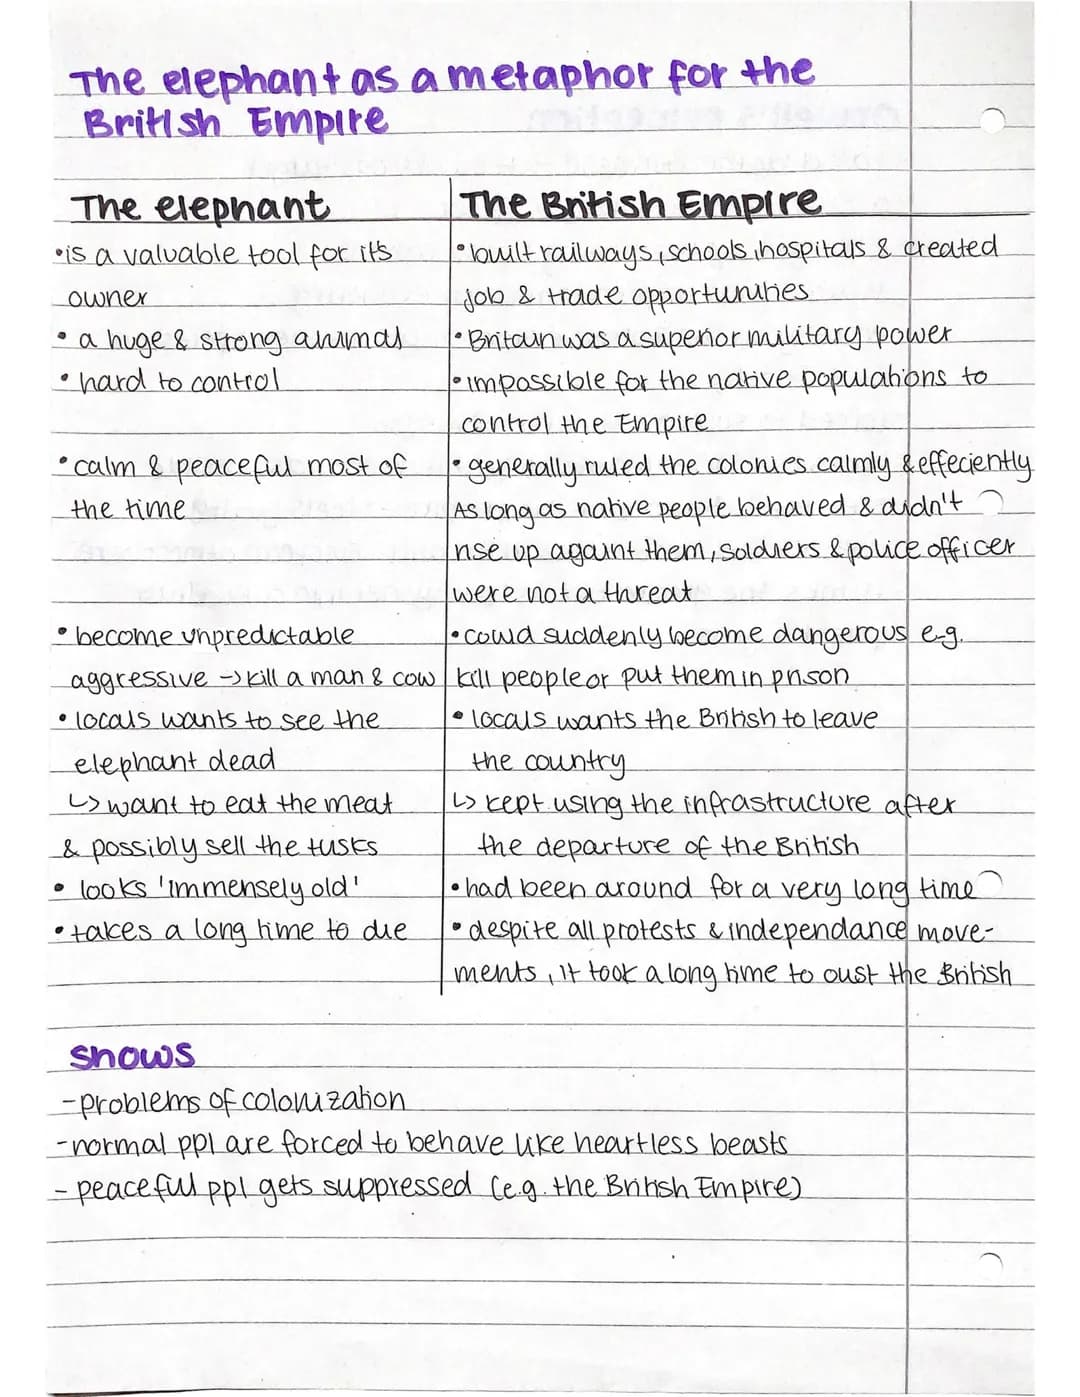 The elephant as a metaphor for the
British Empire
The elephant
•is a valuable tool for it's
owner
• a huge & strong animal
• hard to control
• calm & peaceful most of
the time
• become unpredictable
aggressive -> kill a man & cow
• locals wants to see the
elephant dead
↳ want to eat the meat
& possibly sell the tusks
• looks 'immensely old'
• takes a long time to die
The British Empire
• built railways, schools, hospitals & created
job & trade opportunities
• Britain was a superior military power
• impossible for the native populations to
control the Empire
• generally ruled the colonies calmly & effeciently
As long as native people behaved & didn't
rise up againt them, soldiers & police officer
were not a threat
• could suddenly become dangerous e.g.
kill people or put them in prison
• locals wants the British to leave
the country
↳ kept using the infrastructure after
the departure of the British
• had been around for a very long time
• despite all protests & independance move-
ments, it took a long time to oust the British
shows
-problems of colonization
-normal ppl are forced to behave like heartless beasts
- peaceful ppl gets suppressed (e.g. the British Empire)